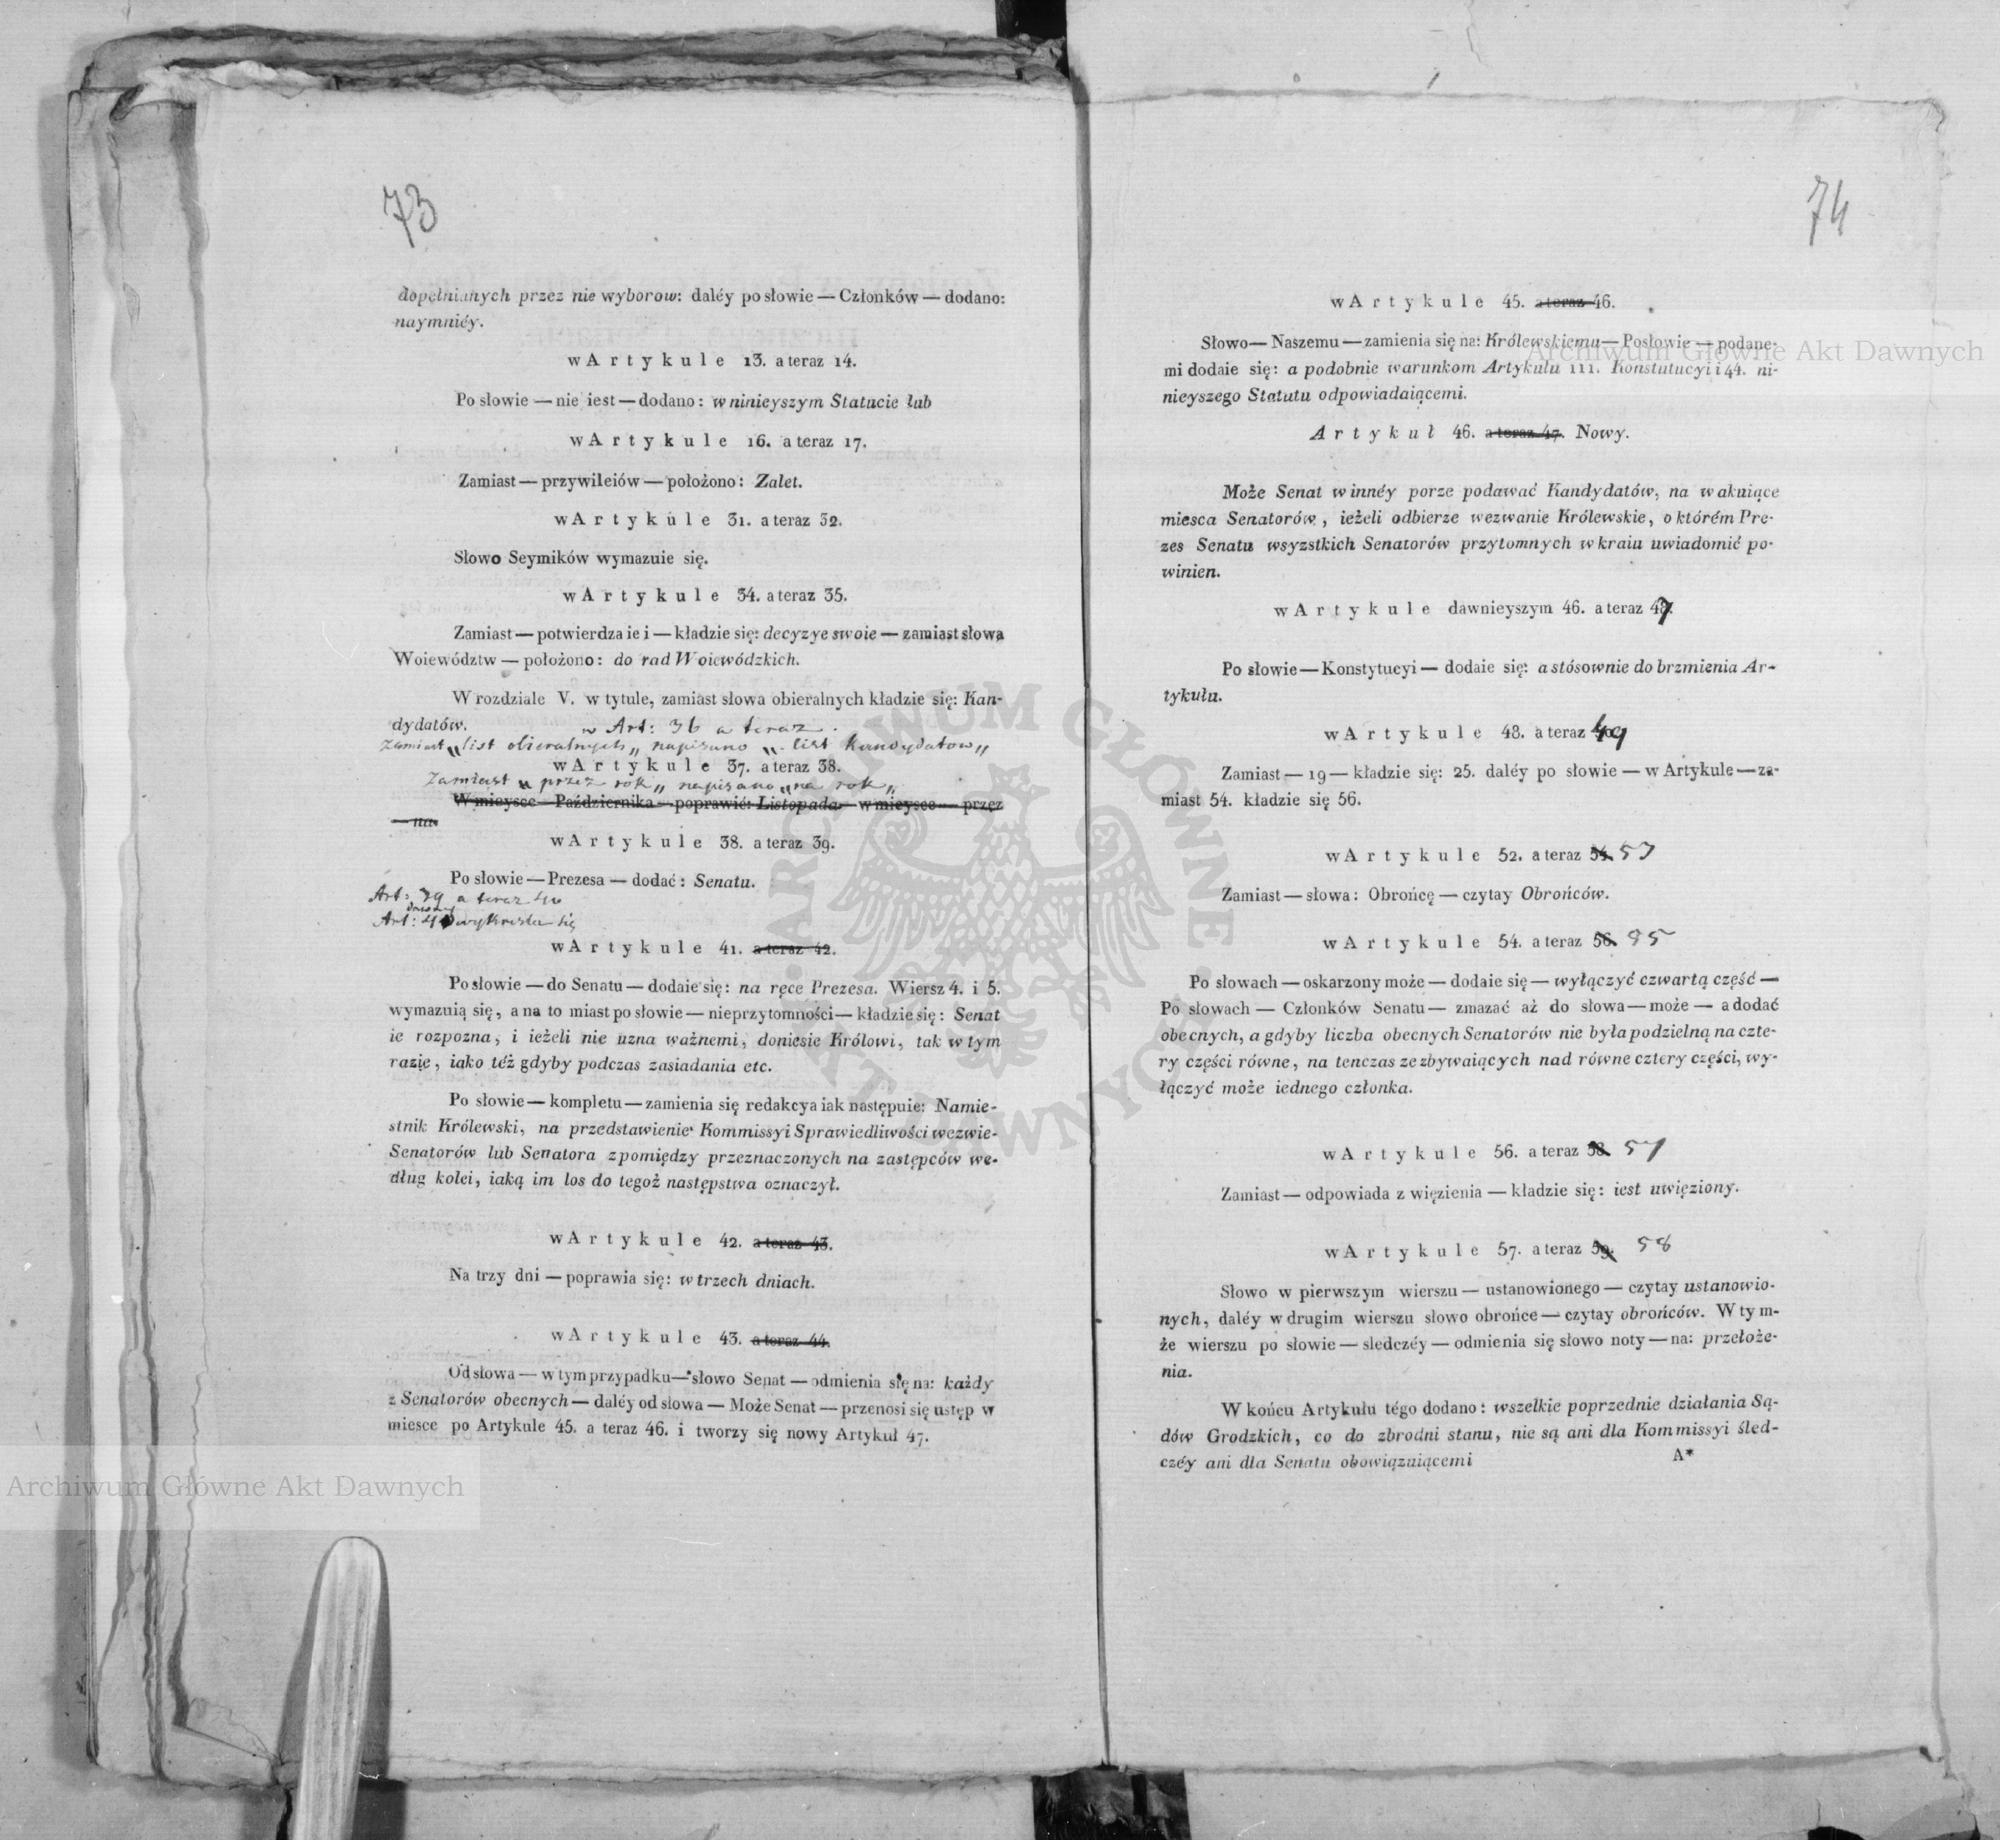 73
dopełnianych przez nie wyborow: daléy po słowie — Członków — dodano:
naymniéy.
w Artykule 13. a teraz 14.
Po słowie — nie iest — dodano: w ninieyszym Statucie lub
w Artykule 16. a teraz 17.
Zamiast — przywileiów — położono: Zalet.
w Artykule 31. a teraz 32.
Słowo Seymików wymazuie się.
w Artykule 34. a teraz 35.
Zamiast — potwierdza ie i — kładzie się: decyzye swoie — zamiast słowa
Woiewództw — położono: do rad Woiewódzkich.
W rozdziale V. w tytule, zamiast słowa obieralnych kładzie się: Kan-
dydatów.
w Art: 36 a teraz.
Zamiast „list obieralnych„ napisano „list kandydatow„
w Artykule 37. a teraz 38.
Zamiast „przez rok„ napisano „na rok„
W mieysce — Października — poprawić: Listopada — w mieysce — przez
— na
w Artykule 38. a teraz 39.
Po słowie — Prezesa — dodać: Senatu.
Art: 39 a teraz 40
dawny
Art: 40 wykresla się
w Artykule 41. a teraz 42.
Po słowie — do Senatu — dodaie się: na ręce Prezesa. Wiersz 4. i 5.
wymazuią się, a na to miast po słowie — nieprzytomności — kładzie się: Senat
ie rozpozna, i ieżeli nie uzna ważnemi, doniesie Królowi, tak w tym
razie, iako téż gdyby podczas zasiadania etc.
Po słowie — kompletu — zamienia się redakcya iak następuie: Namie-
stnik Królewski, na przedstawienie Kommissyi Sprawiedliwości wezwie
Senatorów lub Senatora z pomiędzy przeznaczonych na zastępców we-
dług kolei, iaką im los do tegoż następstwa oznaczył.
w Artykule 42. a teraz 43.
Na trzy dni — poprawia się: w trzech dniach.
w Artykule 43. a teraz 44.
Od słowa — w tym przypadku — słowo Senat — odmienia się na: każdy
z Senatorów obecnych — daléy od słowa — Może Senat — przenosi się ustęp w
miesce po Artykule 45. a teraz 46. i tworzy się nowy Artykuł 47.
74
w Artykule 45. a teraz 46.
Słowo — Naszemu — zamienia się na: Królewskiemu — Posłowie — podane-
mi dodaie się: a podobnie warunkom Artykułu 111. Konstutucyi i 44. ni-
nieyszego Statutu odpowiadaiącemi.
Artykuł 46. a teraz 47. Nowy.
Może Senat w innéy porze podawać Kandydatów, na wakuiące
miesca Senatorów, ieżeli odbierze wezwanie Królewskie, o którém Pre-
zes Senatu wsyzstkich Senatorów przytomnych w kraiu uwiadomić po-
winien.
w Artykule dawnieyszym 46. a teraz 47.
Po słowie — Konstytucyi — dodaie się: a stósownie do brzmienia Ar-
tykułu.
w Artykule 48. a teraz 49
Zamiast — 19 — kładzie się: 25. daléy po słowie — w Artykule — za-
miast 54. kładzie się 56.
w Artykule 52. a teraz 54. 53
Zamiast — słowa: Obrońcę — czytay Obrońców.
w Artykule 54. a teraz 56. 55
Po słowach — oskarzony może — dodaie się — wyłączyć czwartą część —
Po słowach — Członków Senatu — zmazać aż do słowa — może — a dodać
obecnych, a gdyby liczba obecnych Senatorów nie była podzielną na czte-
ry części równe, na tenczas ze zbywaiących nad równe cztery części, wy-
łączyć może iednego członka.
w Artykule 56. a teraz 58. 57
Zamiast — odpowiada z więzienia — kładzie się: iest uwięziony.
w Artykule 57. a teraz 59. 58
Słowo w pierwszym wierszu — ustanowionego — czytay ustanowio-
nych, daléy w drugim wierszu słowo obrońce — czytay obrońców. W tym-
że wierszu po słowie — sledczéy — odmienia się słowo noty — na: przełoże-
nia.
W końcu Artykułu tégo dodano: wszelkie poprzednie działania Są-
dów Grodzkich, co do zbrodni stanu, nie są ani dla Kommissyi śled-
czéy ani dla Senatu obowiązuiącemi
A*
Archiwum Główne Akt Dawnych
Archiwum Główne Akt Dawnych
ARCHIWUM GŁÓWNE AKT DAWNYCH